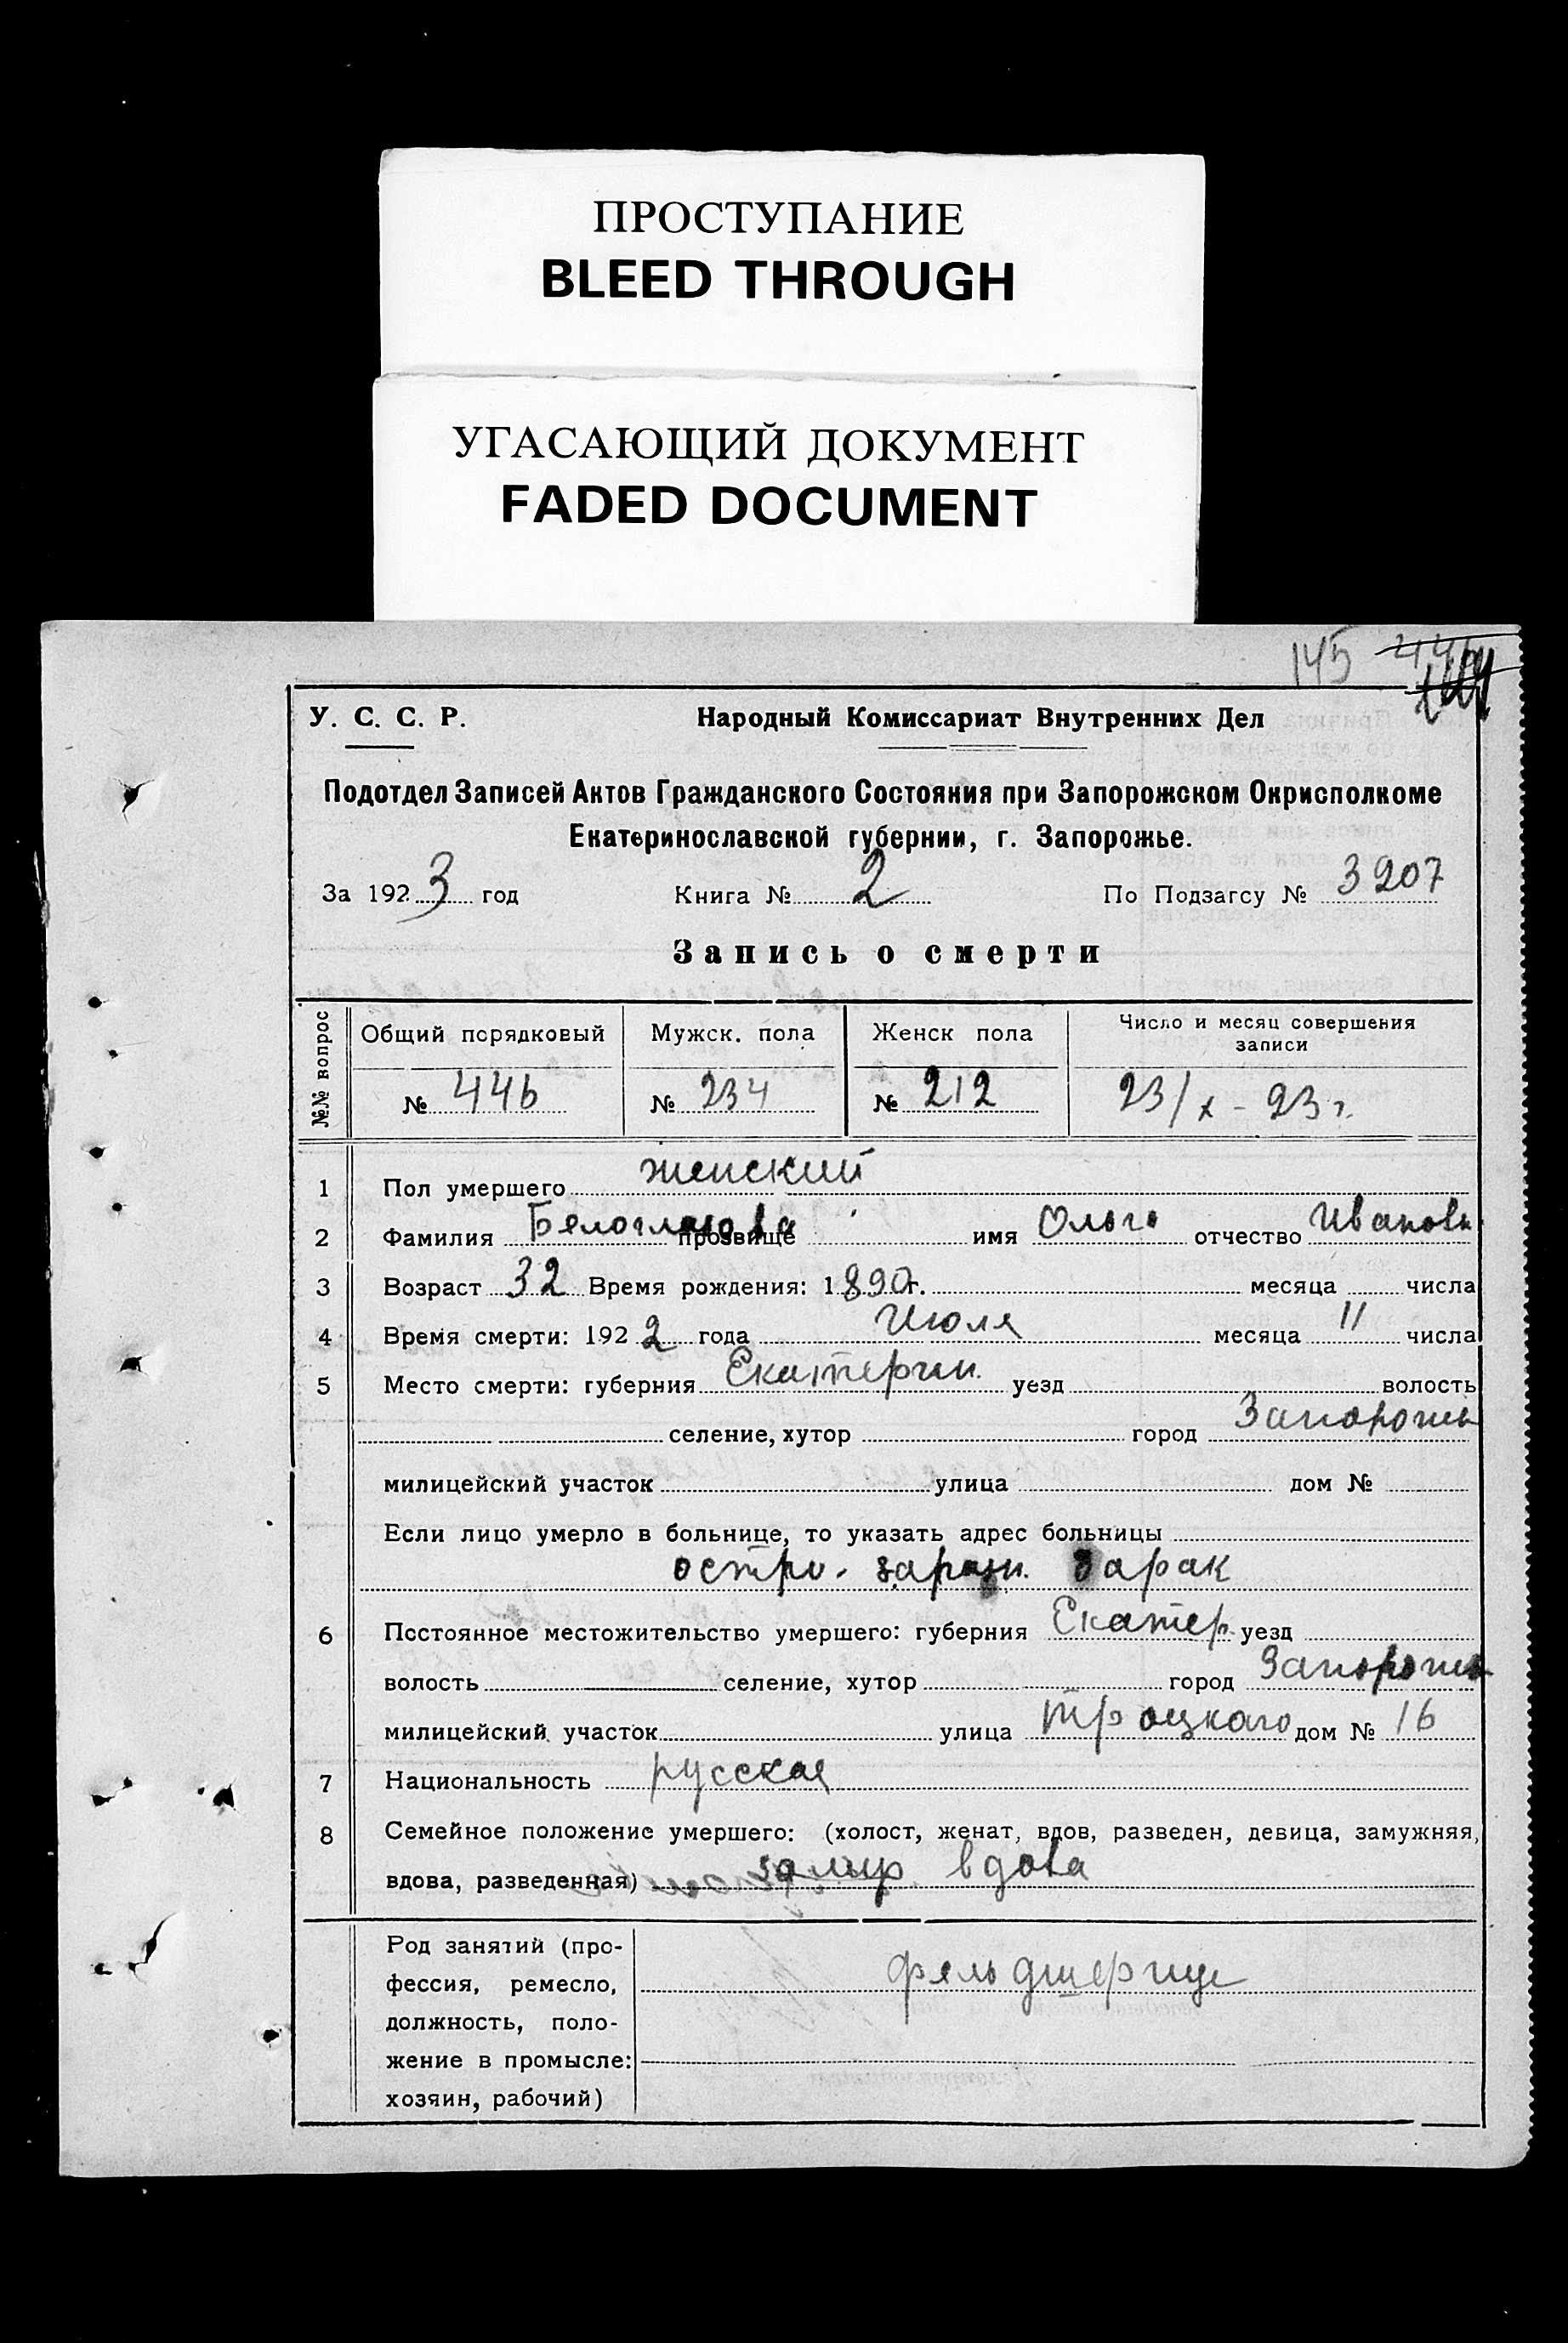 ПРОСТУПАНИЕ
BLEED THROUGH
УГАСАЮЩИЙ ДОКУМЕНТ
FADED DOCUMENT
145 446
У. С. С. Р. Народный Комиссариат Внутренних Дел
Подотдел Записей Актов Гражданского Состояния при Запорожском Окрисполкоме
Екатеринославской губернии, г. Запорожье.
За 1923 год Книга № 2 По Подзагсу № 3207
Запись о смерти
№№ вопрос Общий порядковый Мужск. пола Женск пола Число и месяц совершения записи
№ 446 № 234 № 212 23/х-23г.
1 Пол умершего женский
2 Фамилия Белоглазова прозвище имя Ольга отчество Ивановн
3 Возраст 32 Время рождения: 1890г. месяца числа
4 Время смерти: 1922 года Июля месяца 11 числа
5 Место смерти: губерния Екатерин. уезд волость
селение, хутор город Запорожь
милицейский участок улица дом №
Если лицо умерло в больнице, то указать адрес больницы
остро-заразн. барак
6 Постоянное местожительство умершего: губерния Екатер. уезд
волость селение, хутор город Запорожь
милицейский участок улица Троцкаго дом № 16
7 Национальность русская
8 Семейное положение умершего: (холост, женат, вдов, разведен, девица, замужняя,
вдова, разведенная) вдова
Род занятий (про-
фессия, ремесло, фельдшерица
должность, поло-
жение в промысле:
хозяин, рабочий)